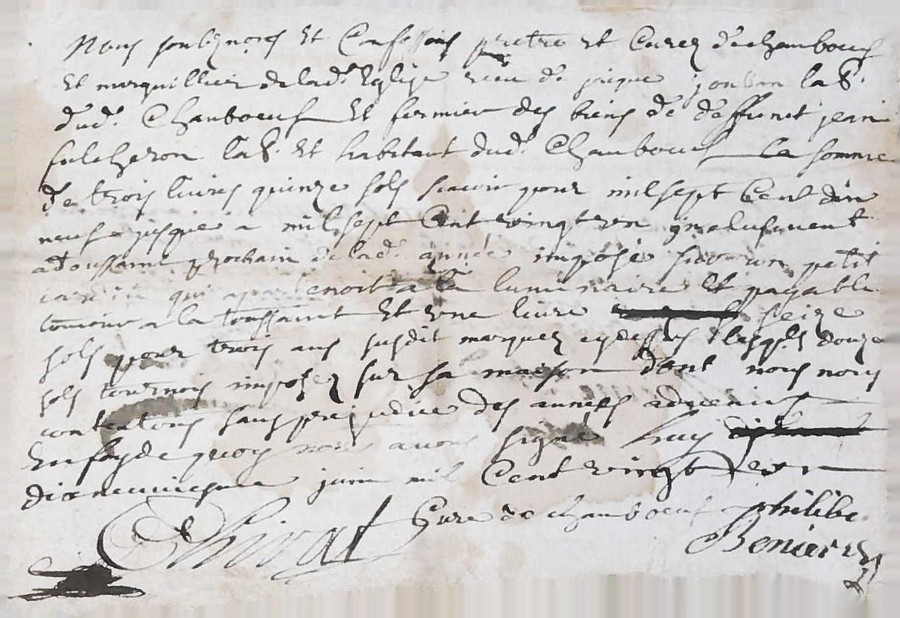 Nous soubsignes et Confessons pretre et Curez de chamboeuf
Et marguillier de lad. Eglise reçu de jaque jouban lab.
dud. Chamboeuf Et fermier des biens de deffunct jean
fulcheron lab. Et habitant dud. Chamboeuf La somme
de trois livres quinze sols scavoir pour mil sept Cent dix
neuf jusque a mil sept Cent vingt un inclusivement
a toussaint prochain de lad. année imposé sur un petit
qui apartenoit a la luminaire Et payable
toujour a la toussaint Et une livre seize
sols pour trois ans susdit marquez cy dessus douze
sols tournois imposez sur sa maison dont nous nous
contentons sans prejudice des années advenir
En foy de quoy nous avons signe huy
dixneuvieme juin mil Cent vingt un
Thivat Cure de chamboeuf philibe.
Benier